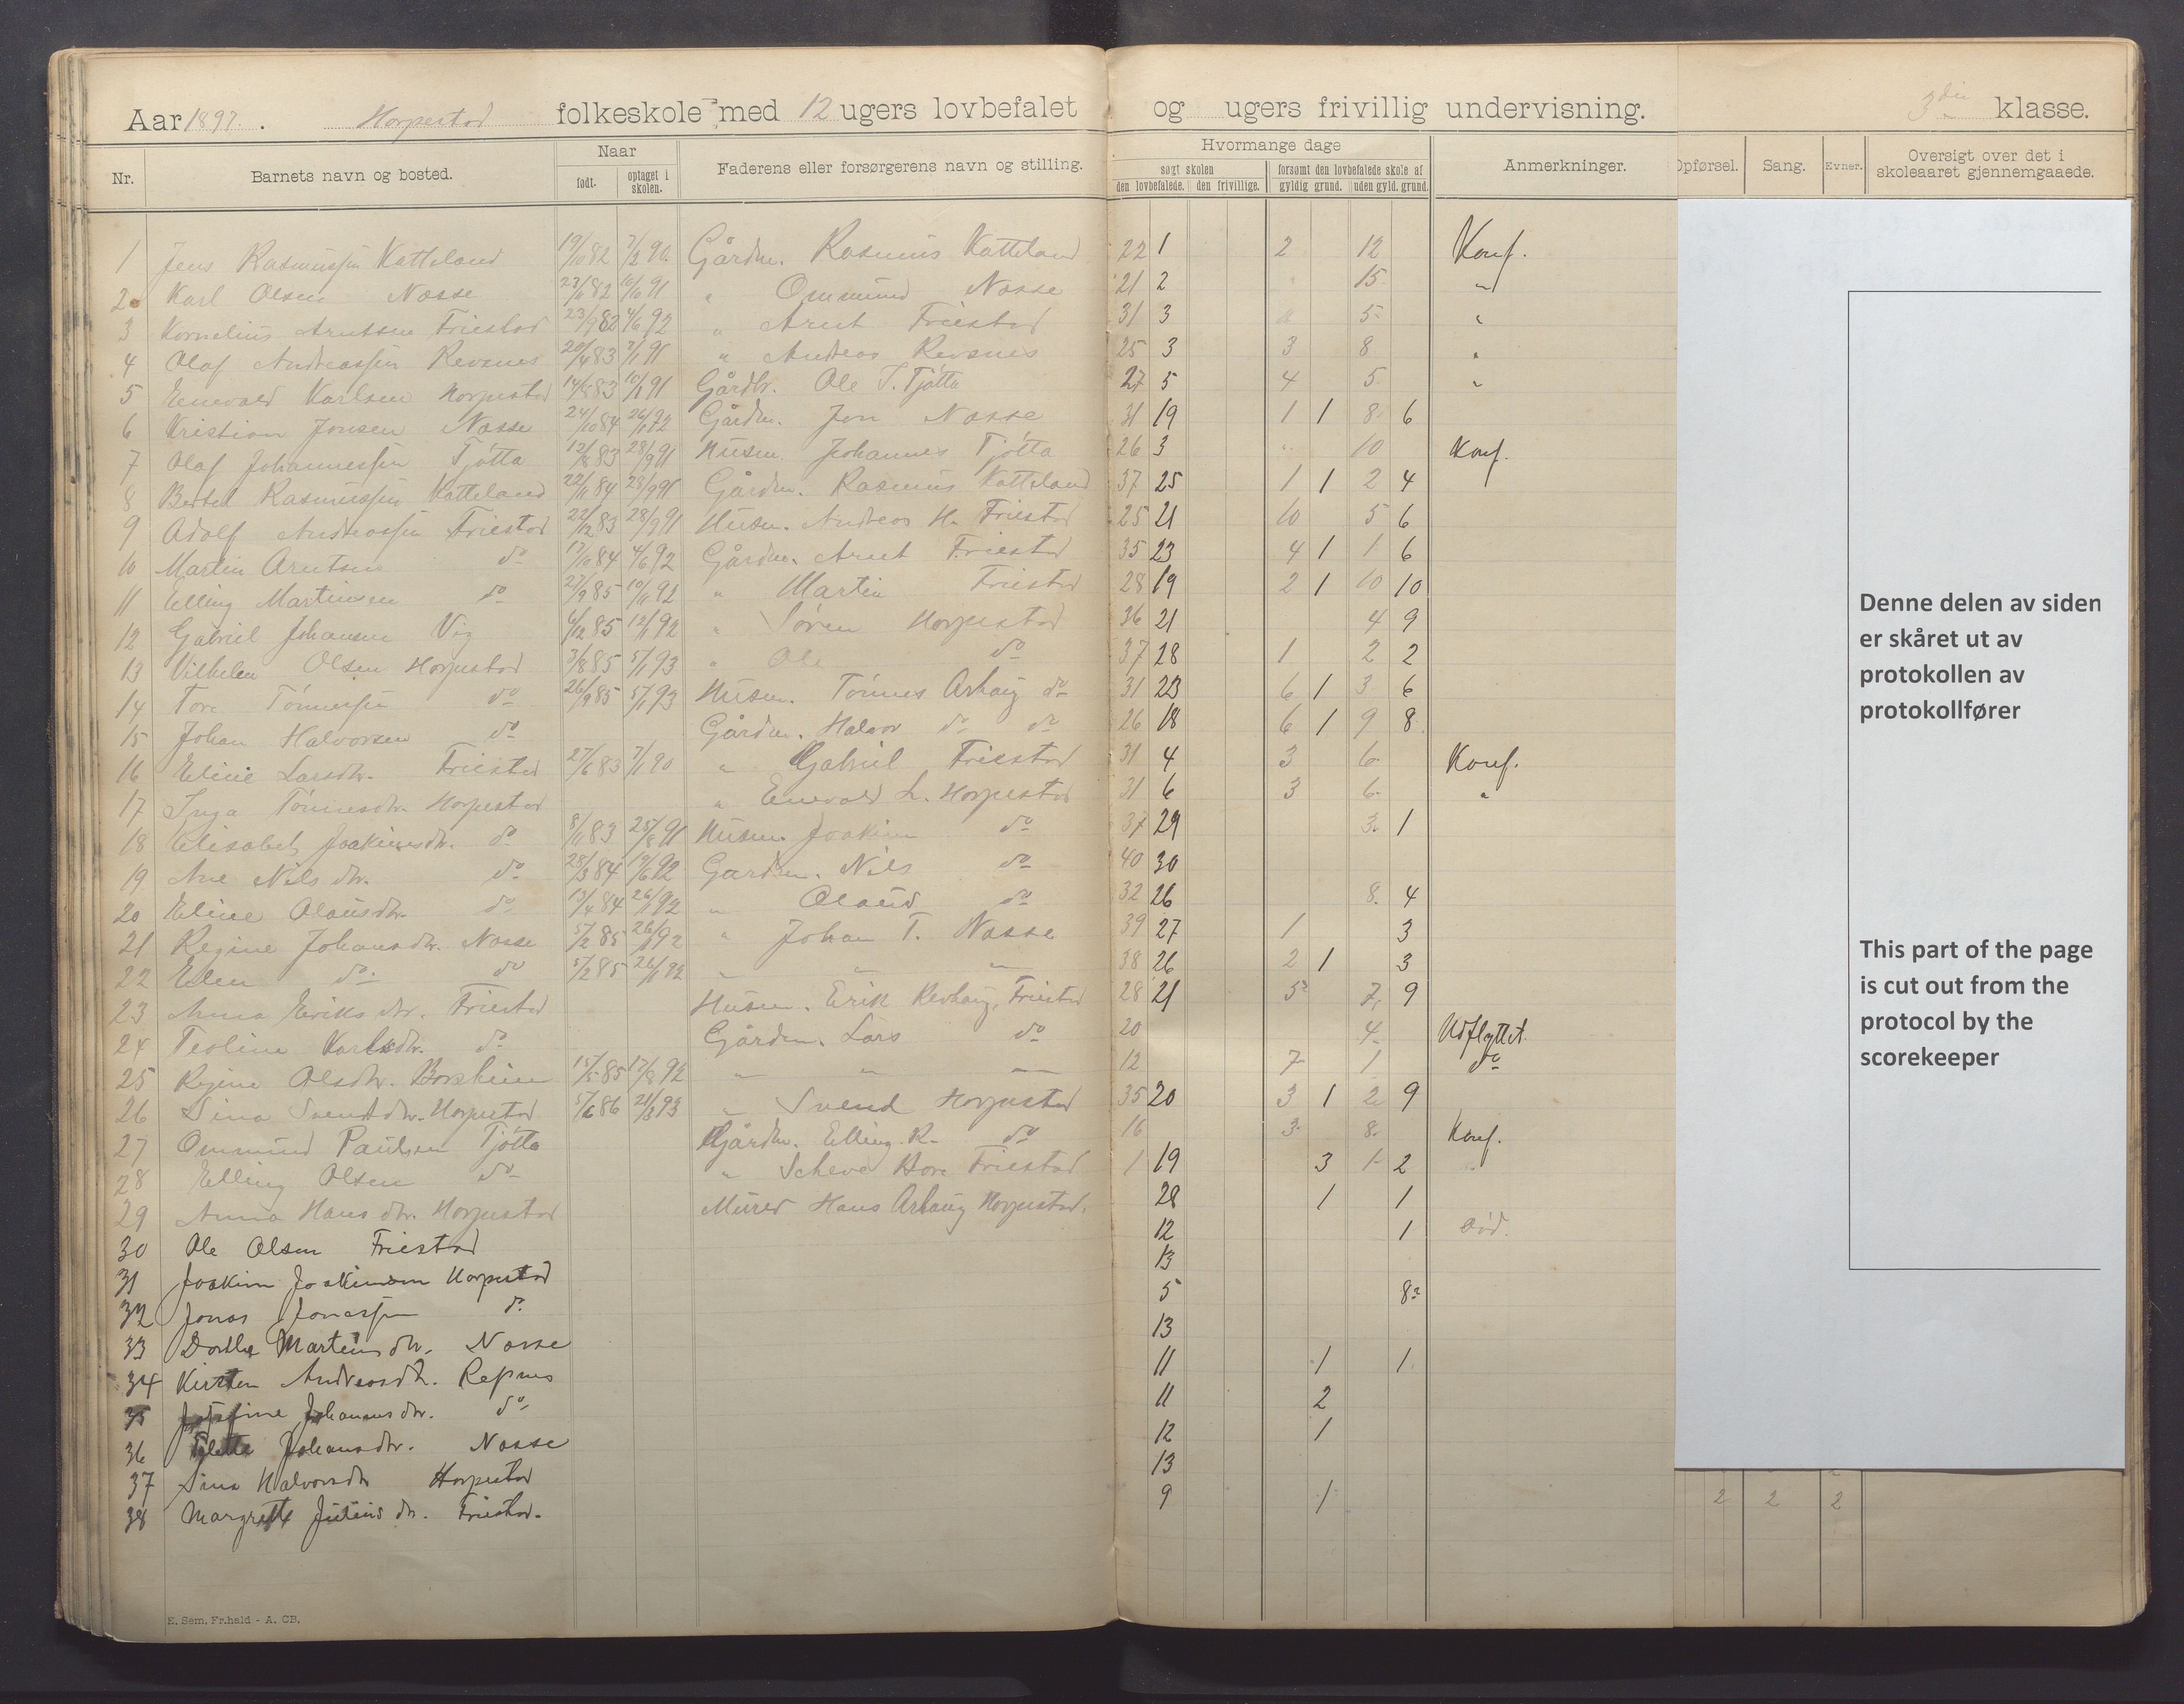 Aar 1897. Horpestad folkeskole med 12 ugers lovbefalet og ugers frivillig undervisning. 3die klasse.
Nr. Barnets navn og bosted. Naar født. optaget i skolen. Faderens eller forsørgerens navn og stilling. Hvormange dage søgt skolen den lovbefalede. den frivillige. forsømt den lovbefalede skole af gyldig grund. uden gyld. grund. Anmerkninger. Opførsel. Sang. Evner. Oversigt over det i skoleaaret gjennemgaaede.
1 Jens Rasmussen Katteland 19/11 82 7/2 90 Gårdm. Rasmus Katteland 22 1 2 12 Konf.
2 Karl Olsen Næsse 23/11 82 10/10 91 " Ommund Næsse 21 2 15 "
3 Kornelius Arntsen Friestad 23/9 82 4/6 92 " Arnt Friestad 31 3 5 "
4 Olaf Andreassen Revsnes 20/4 83 7/1 91 " Andreas Revsnes 25 3 3 8 "
5 Enevald Karlsen Horpestad 14/5 83 10/1 91 Gårdbr. Ole T. Tjøtta 27 5 4 5 "
6 Kristian Jonsen Næsse 24/10 84 26/1 92 Gårdm. Jon Næsse 31 19 1 1 8 6
7 Olaf Johannessen Tjøtta 12/8 83 28/9 91 Husm. Johannes Tjøtta 26 3 " 10 Konf.
8 Bertel Rasmussen Katteland 22/11 84 28/9 91 Gårdm. Rasmus Katteland 37 25 1 1 2 4
9 Adolf Andreassen Friestad 22/12 83 28/9 91 Husm. Andreas H. Friestad 25 21 10 5 6
10 Martin Arntsen do 17/10 84 4/6 92 Gårdm. Arnt Friestad 35 23 4 1 1 6
11 Elling Martinsen do 27/9 85 10/11 92 " Martin Friestad 28 19 2 1 10 10
12 Gabriel Johansen Vig 6/12 85 12/1 92 " Søren Horpestad 36 21 4 9
13 Vilhelm Olsen Horpestad 3/8 85 5/1 93 " Ole do 37 28 1 2 2
14 Tore Tønnessen do 26/9 85 5/1 93 Husm. Tønnes Arhaug do 31 23 6 1 3 6
15 Johan Halvorsen do Gårdm. Halvor do do 26 18 6 1 9 8
16 Eline Larsdtr. Friestad 27/6 83 7/1 90 " Gabriel Friestad 31 4 3 6 Konf.
17 Inga Tønnesdtr. Horpestad " Enevald L. Horpestad 31 6 3 6 "
18 Elisabet Joakimsdtr. do 8/11 83 25/8 91 Husm. Joakim do 37 29 3 1
19 Ane Nilsdtr. do 28/3 84 19/6 92 Gårdm. Nils do 40 30
20 Eline Olausdtr. do 13/4 84 26/1 92 " Olaus do 32 26 8 4
21 Regine Johansdtr. Næsse 5/2 85 26/1 92 " Johan T. Næsse 39 27 1 3
22 Elen do do 5/2 85 26/1 92 " " " 38 26 2 1 3
23 Anna Eriksdtr. Friestad Husm. Erik Revhaug, Friestad 28 21 5 7 9
24 Teoline Karlsdtr. do Gårdm. Lars do 20 4 Udflyttet.
25 Regine Olsdtr. Borsheim 15/5 85 17/8 92 " " " 12 7 1 do
26 Sina Svendsdtr. Horpestad 5/6 86 21/3 93 " Svend Horpestad 35 20 3 1 2 9
27 Ommund Paulsen Tjøtta Gårdm. Elling R. do 16 3 8 Konf.
28 Elling Olsen do " Scheve Hore Friestad 1 19 3 1 2
29 Anna Hansdtr. Horpestad Murer Hans Arhaug Horpestad. 28 1 1
30 Ole Olsen Friestad 12 1 Død.
31 Joakim Joakimsen Horpestad 13
32 Jonas Jonassen do 5 8
33 Dorthe Martinsdtr. Næsse 13
34 Kirsten Andreasdtr. Refsnes 11 1 1
35 Josefine Johannesdtr. do 11 2
36 Johansdtr. Næsse 12 1
37 Sina Halvorsdtr Horpestad 13
38 Margrethe Juliusdtr. Friestad. 9 1 2 2 2
Denne delen av siden
er skåret ut av
protokollen av
protokollfører
This part of the page
is cut out from the
protocol by the
scorekeeper
E. Sem, Fr.hald - A. CB.